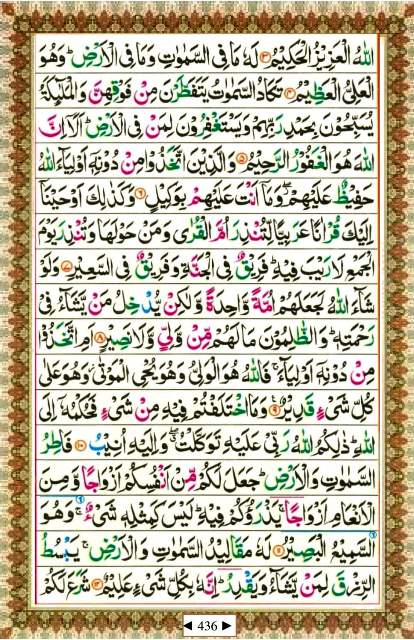 اللهُ الْعَزِيْزُ الْحَكِيْمُ ۝۳ لَهٗ مَا فِى السَّمٰوٰتِ وَمَا فِى الْاَرْضِ ؕ وَهُوَ
الْعَلِىُّ الْعَظِيْمُ ۝۴ تَكَادُ السَّمٰوٰتُ يَتَفَطَّرْنَ مِنْ فَوْقِهِنَّ وَالْمَلٰٓئِكَةُ
يُسَبِّحُوْنَ بِحَمْدِ رَبِّهِمْ وَيَسْتَغْفِرُوْنَ لِمَنْ فِى الْاَرْضِ ؕ اَلَاۤ اِنَّ
اللهَ هُوَ الْغَفُوْرُ الرَّحِيْمُ ۝۵ وَالَّذِيْنَ اتَّخَذُوْا مِنْ دُوْنِهٖۤ اَوْلِيَآءَ اللهُ
حَفِيْظٌ عَلَيْهِمْ ۖ وَمَاۤ اَنْتَ عَلَيْهِمْ بِوَكِيْلٍ ۝۶ وَكَذٰلِكَ اَوْحَيْنَاۤ
اِلَيْكَ قُرْاٰنًا عَرَبِيًّا لِّتُنْذِرَ اُمَّ الْقُرٰى وَمَنْ حَوْلَهَا وَتُنْذِرَ يَوْمَ
الْجَمْعِ لَا رَيْبَ فِيْهِ ؕ فَرِيْقٌ فِى الْجَنَّةِ وَفَرِيْقٌ فِى السَّعِيْرِ ۝۷ وَلَوْ
شَآءَ اللهُ لَجَعَلَهُمْ اُمَّةً وَّاحِدَةً وَّلٰكِنْ يُّدْخِلُ مَنْ يَّشَآءُ فِىْ
رَحْمَتِهٖ ؕ وَالظّٰلِمُوْنَ مَا لَهُمْ مِّنْ وَّلِىٍّ وَّلَا نَصِيْرٍ ۝۸ اَمِ اتَّخَذُوْا
مِنْ دُوْنِهٖۤ اَوْلِيَآءَ ۚ فَاللهُ هُوَ الْوَلِىُّ وَهُوَ يُحْىِ الْمَوْتٰى ؗ وَهُوَ عَلٰى
كُلِّ شَىْءٍ قَدِيْرٌ ۝۹ وَمَا اخْتَلَفْتُمْ فِيْهِ مِنْ شَىْءٍ فَحُكْمُهٗۤ اِلَى
اللهِ ؕ ذٰلِكُمُ اللهُ رَبِّىْ عَلَيْهِ تَوَكَّلْتُ ۖ وَاِلَيْهِ اُنِيْبُ ۝۱۰ فَاطِرُ
السَّمٰوٰتِ وَالْاَرْضِ ؕ جَعَلَ لَكُمْ مِّنْ اَنْفُسِكُمْ اَزْوَاجًا وَّمِنَ
الْاَنْعَامِ اَزْوَاجًا ۚ يَذْرَؤُكُمْ فِيْهِ ؕ لَيْسَ كَمِثْلِهٖ شَىْءٌ ۚ وَهُوَ
السَّمِيْعُ الْبَصِيْرُ ۝۱۱ لَهٗ مَقَالِيْدُ السَّمٰوٰتِ وَالْاَرْضِ ۚ يَبْسُطُ
الرِّزْقَ لِمَنْ يَّشَآءُ وَيَقْدِرُ ؕ اِنَّهٗ بِكُلِّ شَىْءٍ عَلِيْمٌ ۝۱۲ شَرَعَ لَكُمْ
◄ 436 ►